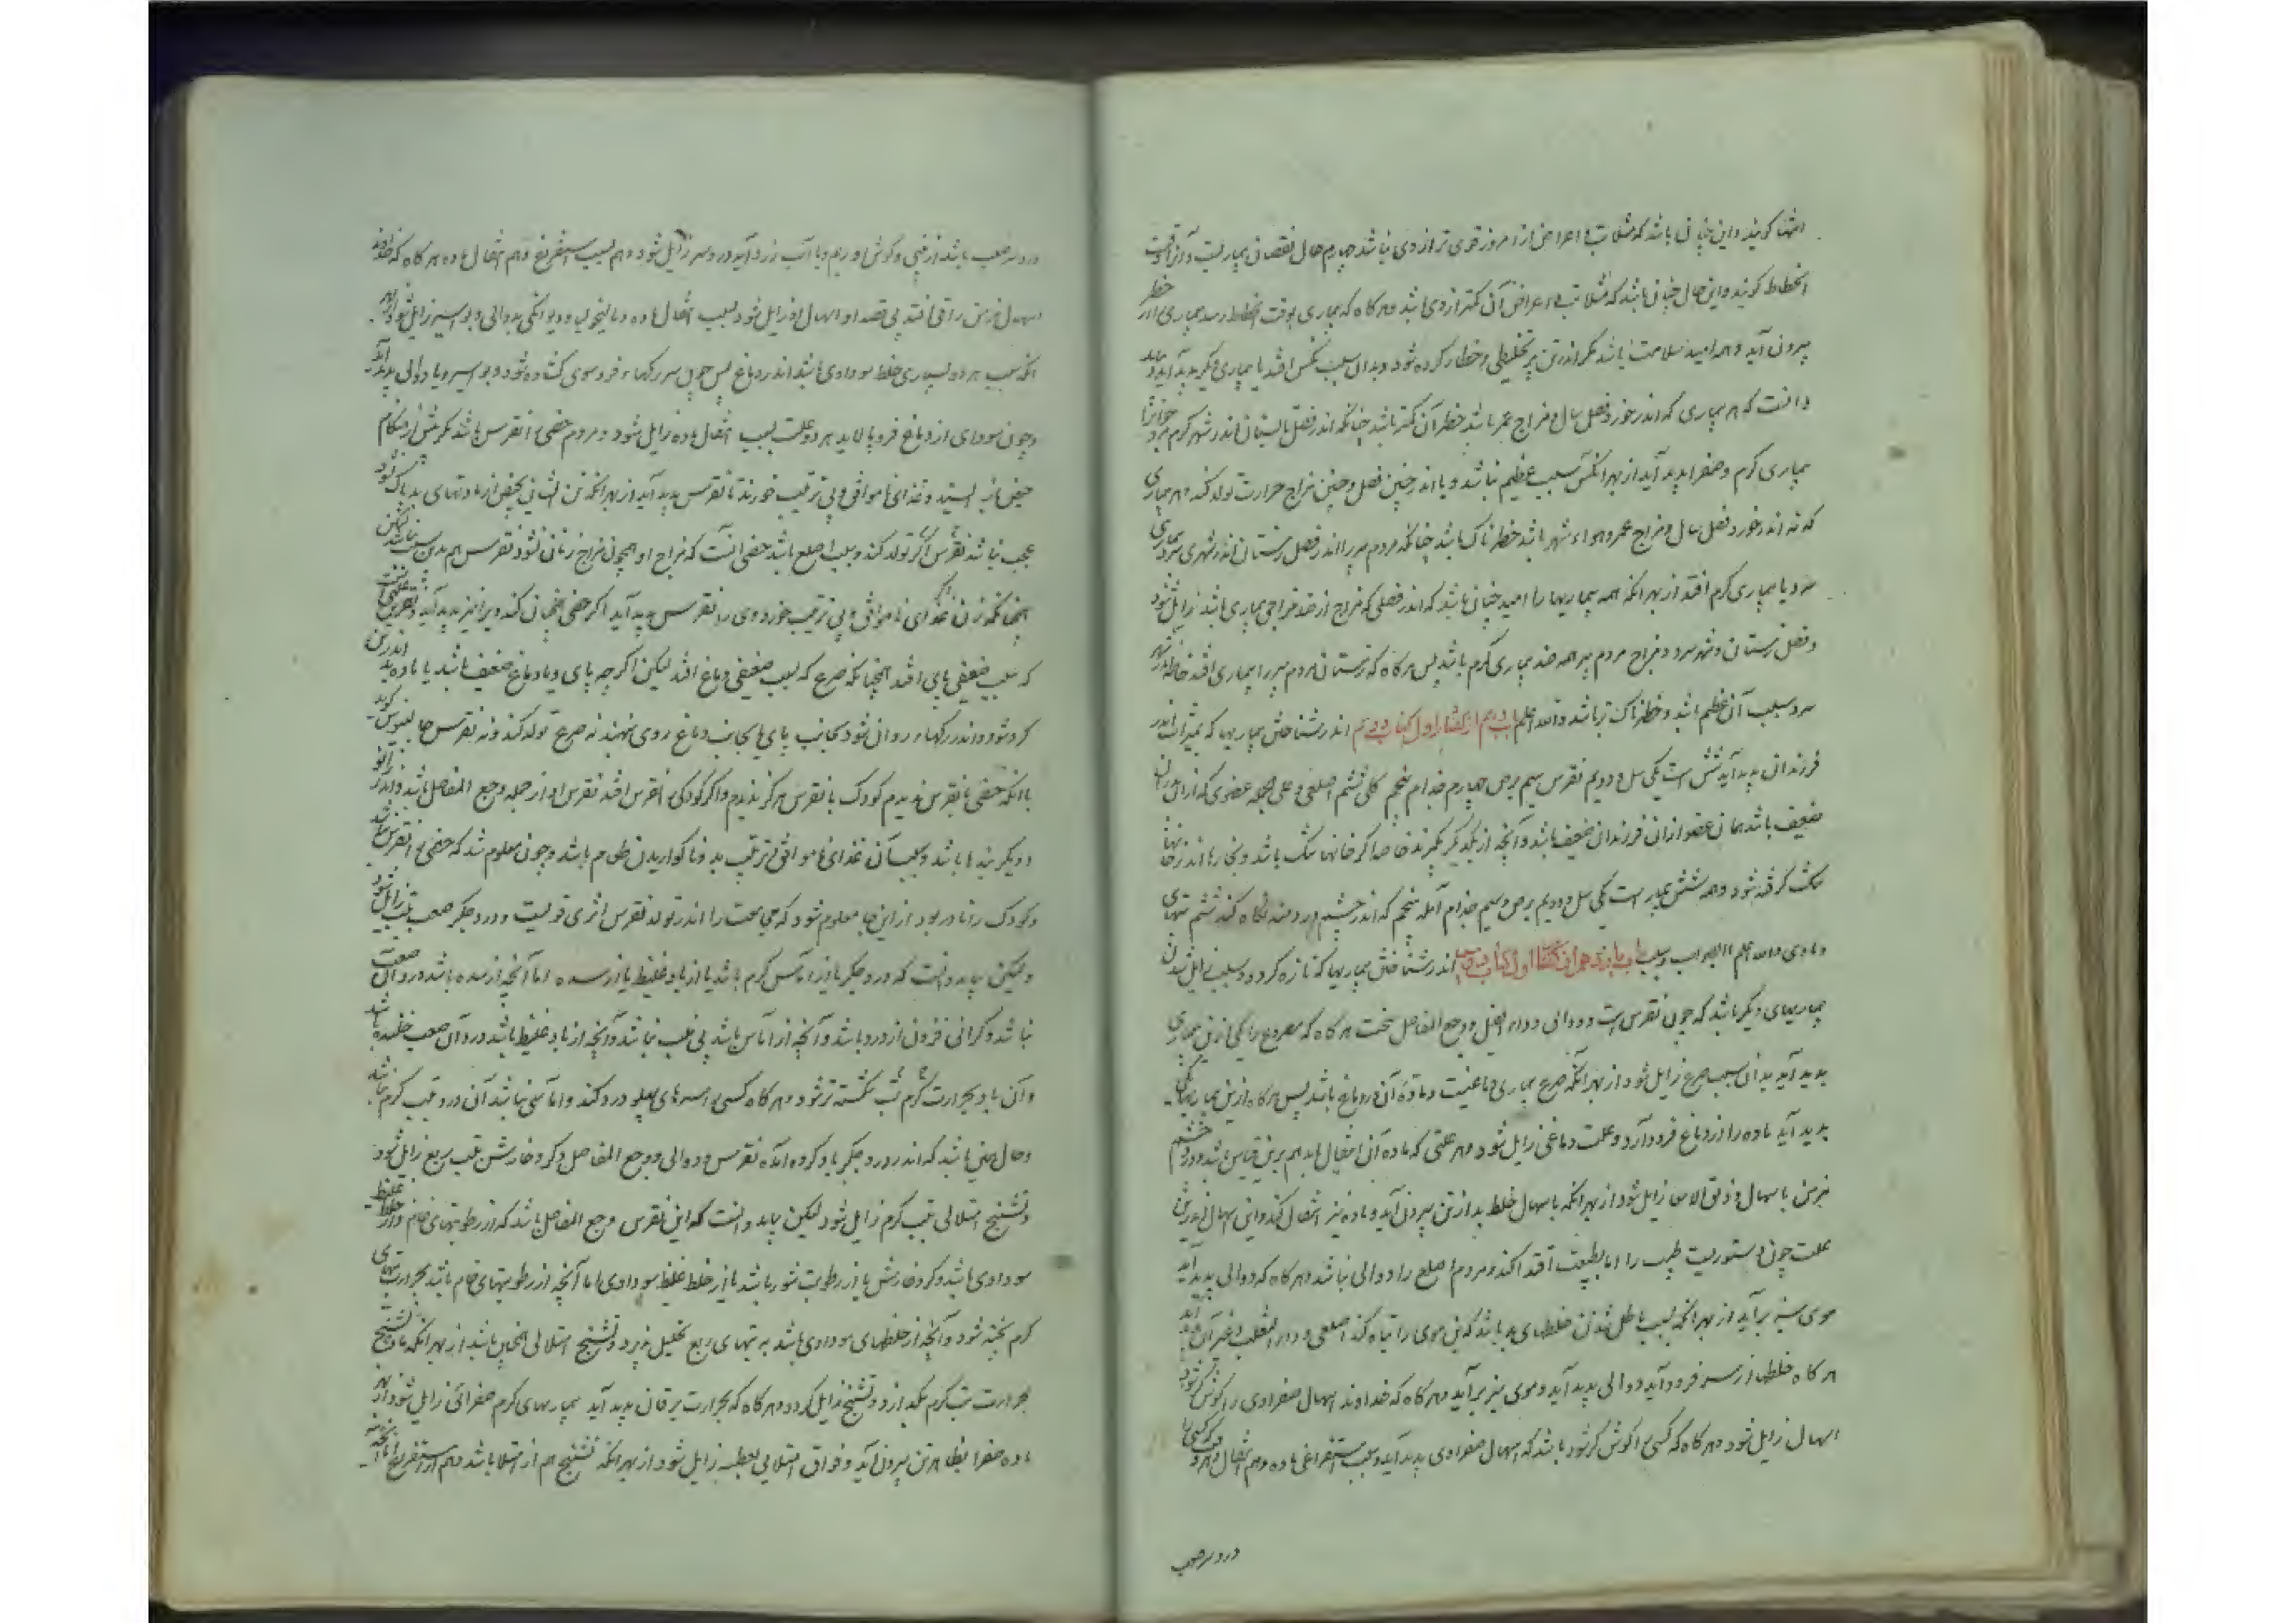 انتها کویند و این چنان باشد که مثلا تب و اعراض از امروز قوی تر از دی نباشد چهارم حال نقصان بیماریست و آنرا وقت
انحطاط کویند و این حال چنان باشد که مثلا تب و اعراض آن کمتر از دی باشد و هر کاه که بیماری بوقت انحطاط رسد بیماری از خطر
بیرون آید و همه امید سلامت باشد مکر اندرتن پر تخلیطی و خطا کرده شود و بدان سبب نکس افتد یا بیماری دیکر پدید آید و باید
دانست که هر بیماری که اندر خورد فصل سال و مزاج عمر باشد خطر آن کمتر باشد چنانکه اندر فصل تابستان اندر شهر کرم مرد جوانرا
بیماری کرم و صفرا پدید آید از بهر انکه سبب عظیم نباشد و یا اندر چنین فصل و چنین مزاج حرارت تولد کند و هر بیماری
که نه اندر خورد فصل سال و مزاج عمر و هواء شهر باشد خطرناک باشد چنانکه مردم پیر را اندر فصل زمستان اندر شهری سرد بیماری
سرد یا بیماری کرم افتد از بهر انکه همه بیماریها را امید چنان باشد که اندر فصلی که مزاج او ضد مزاج بیماری باشد زایل شود
و فصل زمستان و شهر سرد و مزاج مردم پیر همه ضد بیماری کرم باشد پس هر کاه که زمستان مردم پیر را بیماری افتد خاصه اندر شهر
سرد سبب آن عظیم باشد و خطرناک تر باشد والله اعلم باب دهم از کفتار اول از کتاب دویم اندر شناختن بیماریها که بمیراث اندر
فرزندان پدید آید شش است یکی سل دویم نقرس سیم برص چهارم جذام پنجم کلی ششم اصلعی و علی الجمله عضوی که از آن پدر
ضعیف باشد همان عضو از ان فرزندان ضعیف باشد و آنچه از یکدیکر بکیرند خاصه اکر خانها تنک باشد و بخارها اندر خانها
تنک کرفته شود و همه شش بیماریست یکی سل و دویم برص و سیم جذام آبله پنجم که اندر چشم درد مند نکاه کند ششم تبهای
وبائی والله اعلم بالصواب باب یازدهم از کفتار اول از کتاب دویم اندر شناختن بیماریها که تازه کردد و سبب زایل شدن
بیماریهای دیکر باشد که چون نقرس است و دوالی و داء الفیل و وجع المفاصل سخت هر کاه که مصروع را یکی ازین بیماری
پدید آید بدان سبب صرع زایل شود از بهر انکه صرع بیماری دماغیست و ماده آن در دماغ باشد پس هر کاه ازین بیماریها یکی
پدید آید ماده را از دماغ فرود آرد و علت دماغی زایل شود و هر علتی که ماده آن انتقال یابد هم برین قیاس باشد و درد چشم
مزمن باسهال و ذلق الامعا زایل شود از بهر انکه باسهال خلط بد از تن بیرون آید و ماده نیز انتقال کند و این اسهال اندرین
علت چون دستوریست طبیب را تا بطبیعت اقتدا کند و مردم اصلع را دوالی نباشد و هر کاه که دوالی پدید آید
موی سر برآید از بهر انکه سبب باطل شدن خلطهای بد باشد که بن موی را تباه کند اصلعی و داء الثعلب و غیر آن پدید آید
هر کاه خلطها از سر فرود آید دوالی پدید آید و موی سر برآید و هر کاه که خداوند اسهال صفراوی را کوش کر شود
اسهال زایل شود و هر کاه که کسی را کوش کر شود باشد که اسهال صفراوی پدید آید و سبب استفراغ ماده و هم انتقال و هر که کسی را
درد سر صعب
درد سر صعب باشد از بینی و کوش او ریم و یا آب زرد آید درد سر زایل شود و هم بسبب استفراغ و هم انتقال ماده هر کاه که خداوند
اسهال مزمن را قی افتد بی قصد او اسهال او زایل شود بسبب انتقال ماده و مالیخولیا و دیوانکی بدوالی و بواسیر زایل شود از بهر
انکه سبب هر دو بسیاری خلط سوداوی باشد اندر دماغ پس چون سر رکهاء فروسوی کشاده شود و بواسیر و یا دوالی پدید آید
و چون سودای از دماغ فرو پالاید هر دو علت بسبب انتقال ماده زایل شود و مردم خصی را نقرس نباشد مکر زنش را هنکام
حیض باز ایستد و غذای ناموافق و بی ترتیب خورند تا نقرس پدید آید از بهر انکه تن ایشان بحیض از مادتهای بد پاک شود
عجب نباشد نقرس اکر تولد کند و سبب اصلع باشد خصی انست که مزاج او همچون مزاج زنان شود نقرس هم بدین سبب نباشد لیکن
همچنانکه زن غذای ناموافق و بی ترتیب خورد وی را نقرس پدید آید اکر خصی همچنان کند ویرا نیز پدید آید و نقرس علتی است
که بسبب ضعیفی پای افتد همچنانکه صرع که بسبب ضعیفی دماغ افتد لیکن اکر چه پای و یا دماغ ضعیف باشد یا ماده بد اندر تن
کرد شود و اندر رکهاء روان شود بجانب پای یا بجانب دماغ روی ننهند نه صرع تولد کند و نه نقرس جالینوس کوید
با انکه خصی با نقرس ندیدم کودک با نقرس هرکز ندیدم و اکر کودکی را نقرس افتد نقرس او از جمله وجع المفاصل باشد و اندر زانو
و دیکر بندها باشد و سبب آن غذای ناموافق و ترتیب بد و ناکواریدن طعام باشد و چون معلوم شد که خصی را نقرس نباشد
و کودک را نادر بود از این جا معلوم شود که مجامعت را اندر تولد نقرس اثری قویست و درد جکر صعب بتب زایل شود
ولیکن بباید دانست که درد جکر یا از آماس کرم باشد یا از باد غلیظ یا از سده اما آنچه از سده باشد درد آن صعب
نباشد و کرانی فزون از درد باشد و آنچه از آماس باشد بی تب نباشد و آنچه از باد غلیظ باشد درد آن صعب خلیده باشد
و آن باد بحرارت کرم تب شکسته تر شود و هر کاه کسی را سرهای پهلو درد کند و آماسی نباشد آن درد بتب کرم باشد
و حال چنین باشد که اندر درد جکر یاد کرده آمد نقرس و دوالی و وجع المفاصل و کر و خارش بتب ربع زایل شود
و تشنج امتلائی بتب کرم زایل شود لیکن بباید دانست که این نقرس وجع المفاصل باشد که از رطوبتهای خام و از خلط غلیظ
سوداوی باشد و کر و خارش یا از رطوبت شور باشد یا از خلط غلیظ سوداوی اما آنچه از رطوبتهای خام باشد بحرارت تبهای
کرم پخته شود و آنچه از خلطهای سوداوی باشد به تبهای ربع تحلیل پذیرد و تشنج امتلائی همچنین باشد از بهر انکه ماده تشنج
بحرارت تب کرم بکدازد و تشنج زایل کردد و هر کاه که بحرارت یرقان پدید آید بیماریهای کرم صفرائی زایل شود از بهر انکه
ماده صفرا بظاهر تن بیرون آید و فواق امتلایی بعطسه زایل شود از بهر انکه تشنج هم از امتلا باشد و هم از استفراغ اما آنچه